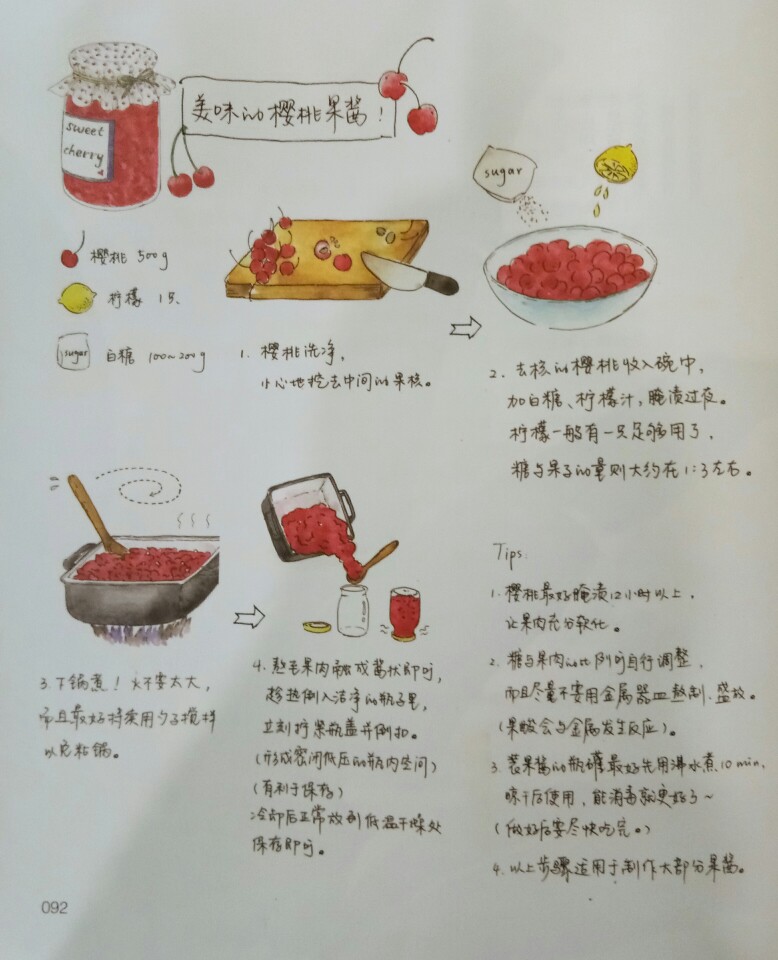 sweet
cherry
美味的樱桃果酱！
樱桃 500g
柠檬 1只
sugar
白糖 100~200g
1. 樱桃洗净，
小心地挖去中间的果核。
sugar
2. 去核的樱桃收入碗中，
加白糖、柠檬汁，腌渍过夜。
柠檬一般有一只足够用了，
糖与果子的量则大约在1:3左右。
3. 下锅煮！火不要太大，
而且最好持续用勺子搅拌
以免粘锅。
4. 熬至果肉融成酱状即可，
趁热倒入洁净的瓶子里，
立刻拧紧瓶盖并倒扣。
(形成密闭低压的瓶内空间)
(有利于保存)
冷却后正常放到低温干燥处
保存即可。
Tips:
1. 樱桃最好腌渍12小时以上，
让果肉充分软化。
2. 糖与果肉的比例可自行调整，
而且尽量不要用金属器皿熬制、盛放。
(果酸会与金属发生反应)。
3. 装果酱的瓶罐最好先用沸水煮10min，
晾干后使用，能消毒就更好了~
(做好后要尽快吃完。)
4. 以上步骤适用于制作大部分果酱。
092